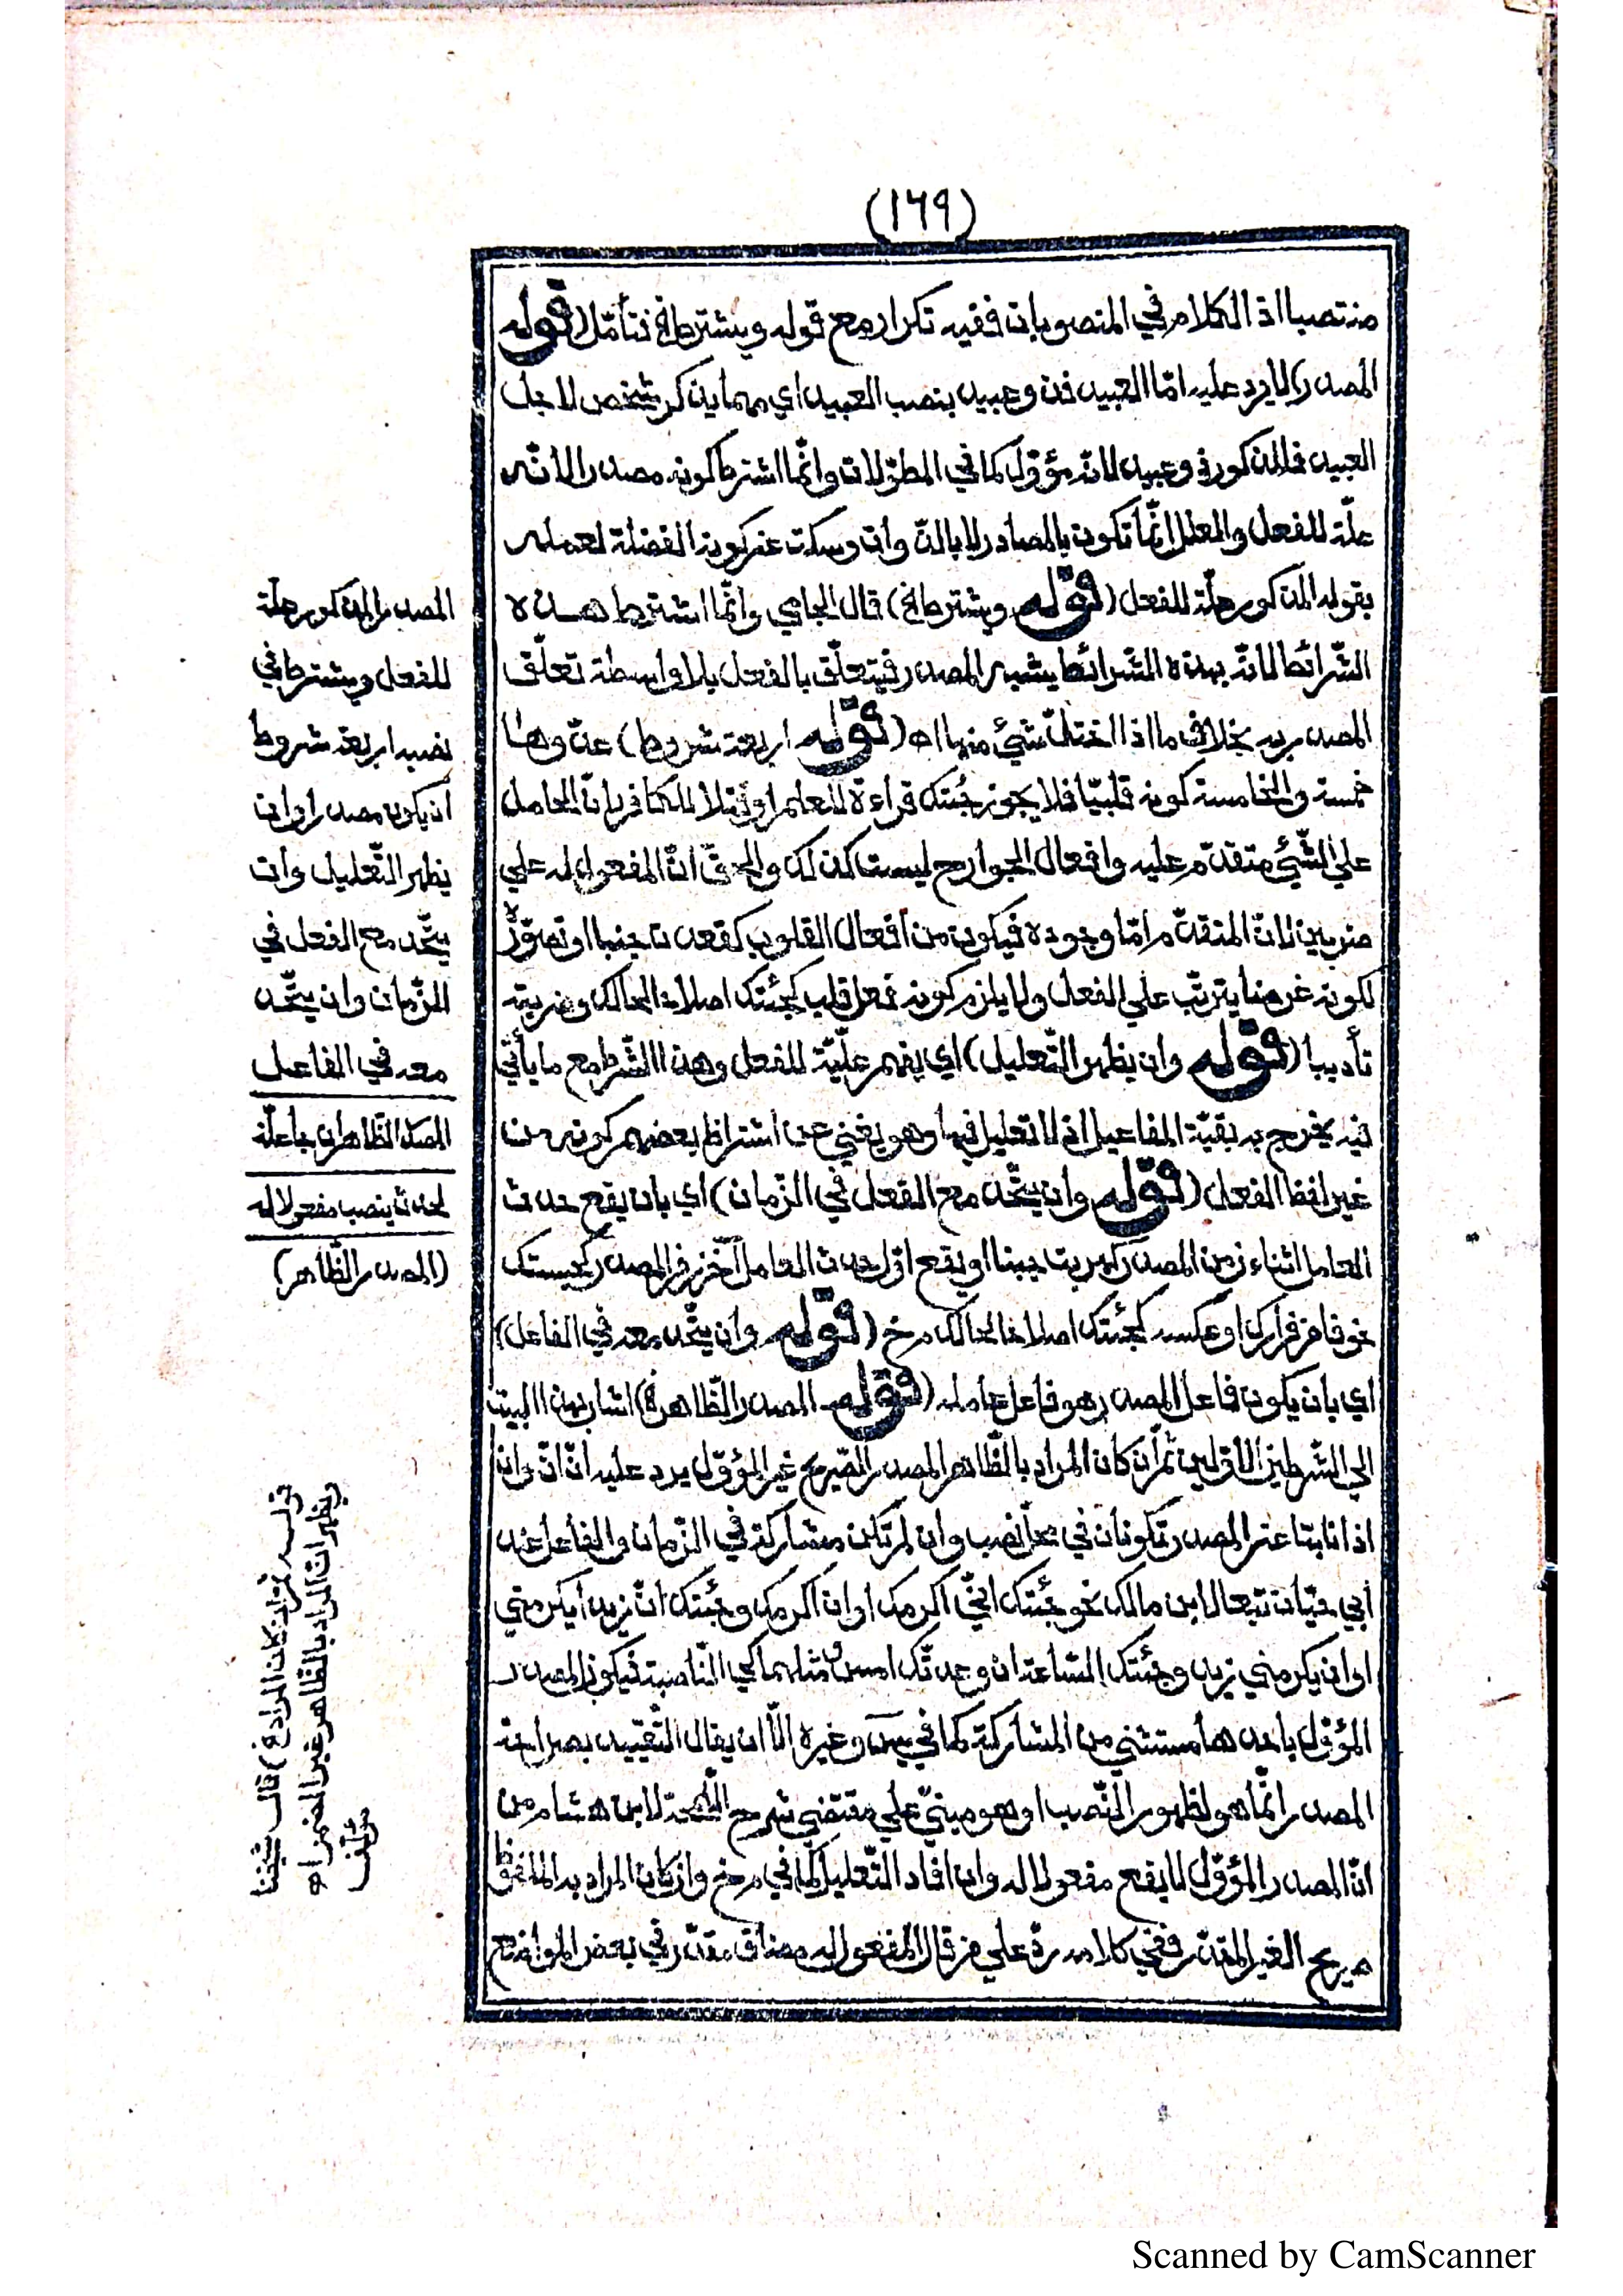 (١٦٩)
منتصبا اذ الكلام في المنصوبات ففيه تكرار مع قوله ويشترط الخ فتأمّل (قوله
المصدر) لا يرد عليه امّا العبيد فذو عبيد بنصب العبيد اي مهما يذكر شخص لاجل
العبيد فالمذكور ذو عبيد لانّه مؤوّل كما في المطوّلات وانّما اشترط كونه مصدرا لانّه
علّة للفعل والعلل انّما تكون بالمصادر لا بالذّوات وسكت عن كونه الفضلة لعلمه
بقوله المذكور علّة للفعل (قوله ويشترط الخ) قال الجامي وانّما اشترط هذه
الشّرائط لانّه بهذه الشّرائط يشبه المصدر فيتعلّق بالفعل بلا واسطة تعلّق
المصدر به بخلاف ما اذا اختلّ شيئ منها اه (قوله اربعة شروط) عدّوها
خمسة والخامسة كونه قلبيّا فلا يجوز جئتك قراءة للعلم او قتلا للكافر لانّ الحامل
علي الشّيئ متقدّم عليه وافعال الجوارح ليست كذلك والحقّ انّ المفعول له علي
ضربين لانّ المتقدّم امّا وجوده فيكون من افعال القلوب كقعدت جبنا او تصوّره
لكونه غرضا يترتّب علي الفعل ولا يلزم كونه فعل قلب كجئتك اصلاح الحالك وضربته
تأديبا (قوله وان يظهر التّعليل) اي يفهم علّيّة للفعل وهذا الشّرط مع ما يأتي
فيه يخرج به بقيّة المفاعيل اذ لا تعليل فيها وهو يغني عن اشتراط بعضهم كونه من
غير لفظ الفعل (قوله وان يتّحد مع الفعل في الزّمان) اي بان يقع حدث
العامل اثناء زمن المصدر كهربت جبنا او يقع اوّل حدث العامل آخر زمن المصدر كحبستك
خوفا من فرارك او عكسه كجئتك اصلاحا لحالك م خ (قوله وان يتّحد معه في الفاعل)
اي بان يكون فاعل المصدر هو فاعل عامله (قوله المصدر الظّاهر الخ) اشار بهذا البيت
الي الشّرطين الاوّلين ثمّ ان كان المراد بالظّاهر المصدر الصّريح غير المؤوّل يرد عليه انّ انّ وان
اذا نابتا عن المصدر تكونان في محلّ نصب وان لم تكن مشاركة في الزّمان والفاعل عند
ابي حيّان تبعا لابن مالك نحو جئتك انّي اكرمك او ان اكرمك وجئتك انّ زيدا يكرمني
او ان يكرمني زيد وجئتك السّاعة ان وعدتّك امس ومثلهما كي النّاصبة فيكون المصدر
المؤوّل باحدها مستثني من المشاركة كما في يس وغيره الّا ان يقال التّقييد بصراحة
المصدر انّما هو لظهور النّصب او هو مبنيّ علي مقتضي شرح اللّمحة لابن هشام من
انّ المصدر المؤوّل لا يقع مفعولا له وان افاد التّعليل كما في م خ وان كان المراد به الملفوظ
صريح الغير المقدّر ففي كلامه ردّ علي من قال المفعول له مضاف مقدّر في بعض المواضع
المصدر المذكور علّة
للفعل ويشترط في
نصبه اربعة شروط
ان يكون مصدرا وان
يظهر التّعليل وان
يتّحد مع الفعل في
الزّمان وان يتّحد
معه في الفاعل
المصدر الظّاهر ان جا علّة
لحدث ينصب مفعولا له
(المصدر الظّاهر)
قوله ثمّ ان كان المراد الخ) قال شيخنا
ويظهر ان المراد بالظاهر غير المضمر اه
مؤلف
Scanned by CamScanner